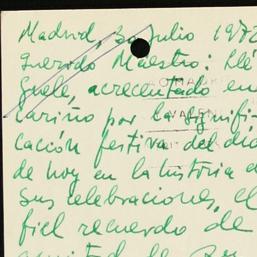 Madrid, 30 julio 197
Querido Maestro: Llé
guele, acrecentado en
cariño por la signifi-
cación festiva del dí
de hoy en la historia d
sus celebraciones, el
fiel recuerdo de